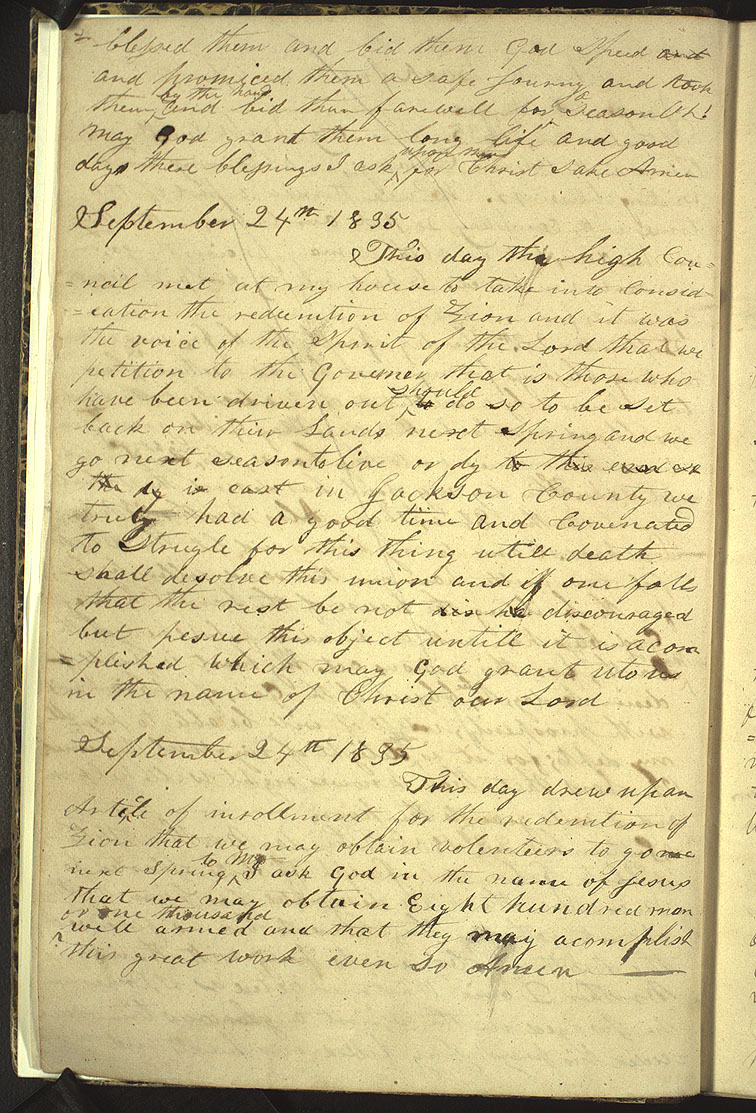 blessed them and bid them God speed and
and promiced them a safe Journy and took
them by the hand and bid them farewell for a season Oh!
may God grant them long life and good
days these blessings I ask upon them for Christ sake Amen
September 24th 1835
This day the high Cou=
=ncil met at my house to take into Consid
=eation the redemtion of Zion and it was
the voice of the Spirit of the Lord that we
petition to the Governer that is those who
have been driven out should do so to be set
back on their Lands next Spring and we
go next season to live or dy to this end so
the dy is cast in Jackson County we
truly had a good time and Covenated
to strugle for this thing utill death
shall desolve this union and if one falls
that the rest be not dis he discouraged
but pesue this object untill it is acom
=plished which may God grant uto us
in the name of Christ our Lord
September 24th 1835
This day drew up an
Article of inrollment for the redemtion of
Zion that we may obtain volenteers to go me
next Spring to Mo I ask God in the name of Jesus
that we may obtain Eight hundred men
or one thousand
well armed and that they may acomplish
this great work even so Amen ——